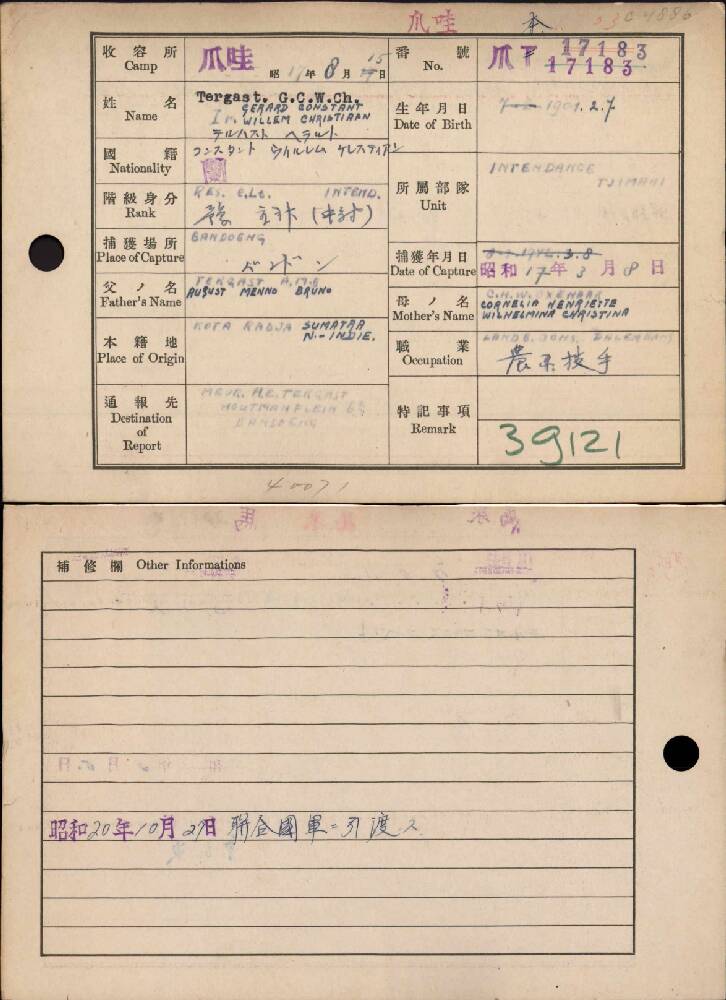 爪哇
收容所 Camp
爪哇
昭 17年 8月 15日
番號 No.
爪T 17183
17183
姓名 Name
Tergast. G.C.W.Ch.
GERARD CONSTANT
Ir. WILLEM CHRISTIAAN
テルハスト ヘラルト
コンスタント ウイルレム
生年月日 Date of Birth
1901.2.7
國籍 Nationality
階級身分 Rank
RES. e.Lt. INTEND.
所屬部隊 Unit
INTENDANCE
TJIMAHI
捕獲場所 Place of Capture
BANDOENG
バンドン
捕獲年月日 Date of Capture
昭和 17年 3月 8日
父ノ名 Father's Name
TERGAST A.M.B
AUGUST MENNO BRUNO
母ノ名 Mother's Name
CORNELIA HENRIETTE
WILHELMINA CHRISTINA
本籍地 Place of Origin
KOTA RADJA SUMATRA
N.-INDIE.
職業 Occupation
技手
通報先 Destination of Report
MEVR. H.E. TERGAST
HOUTMANPLEIN
BANDOENG
特記事項 Remark
39121
40071
補修欄 Other Informations
昭和20年10月27日 聯合國軍ニ引渡ス